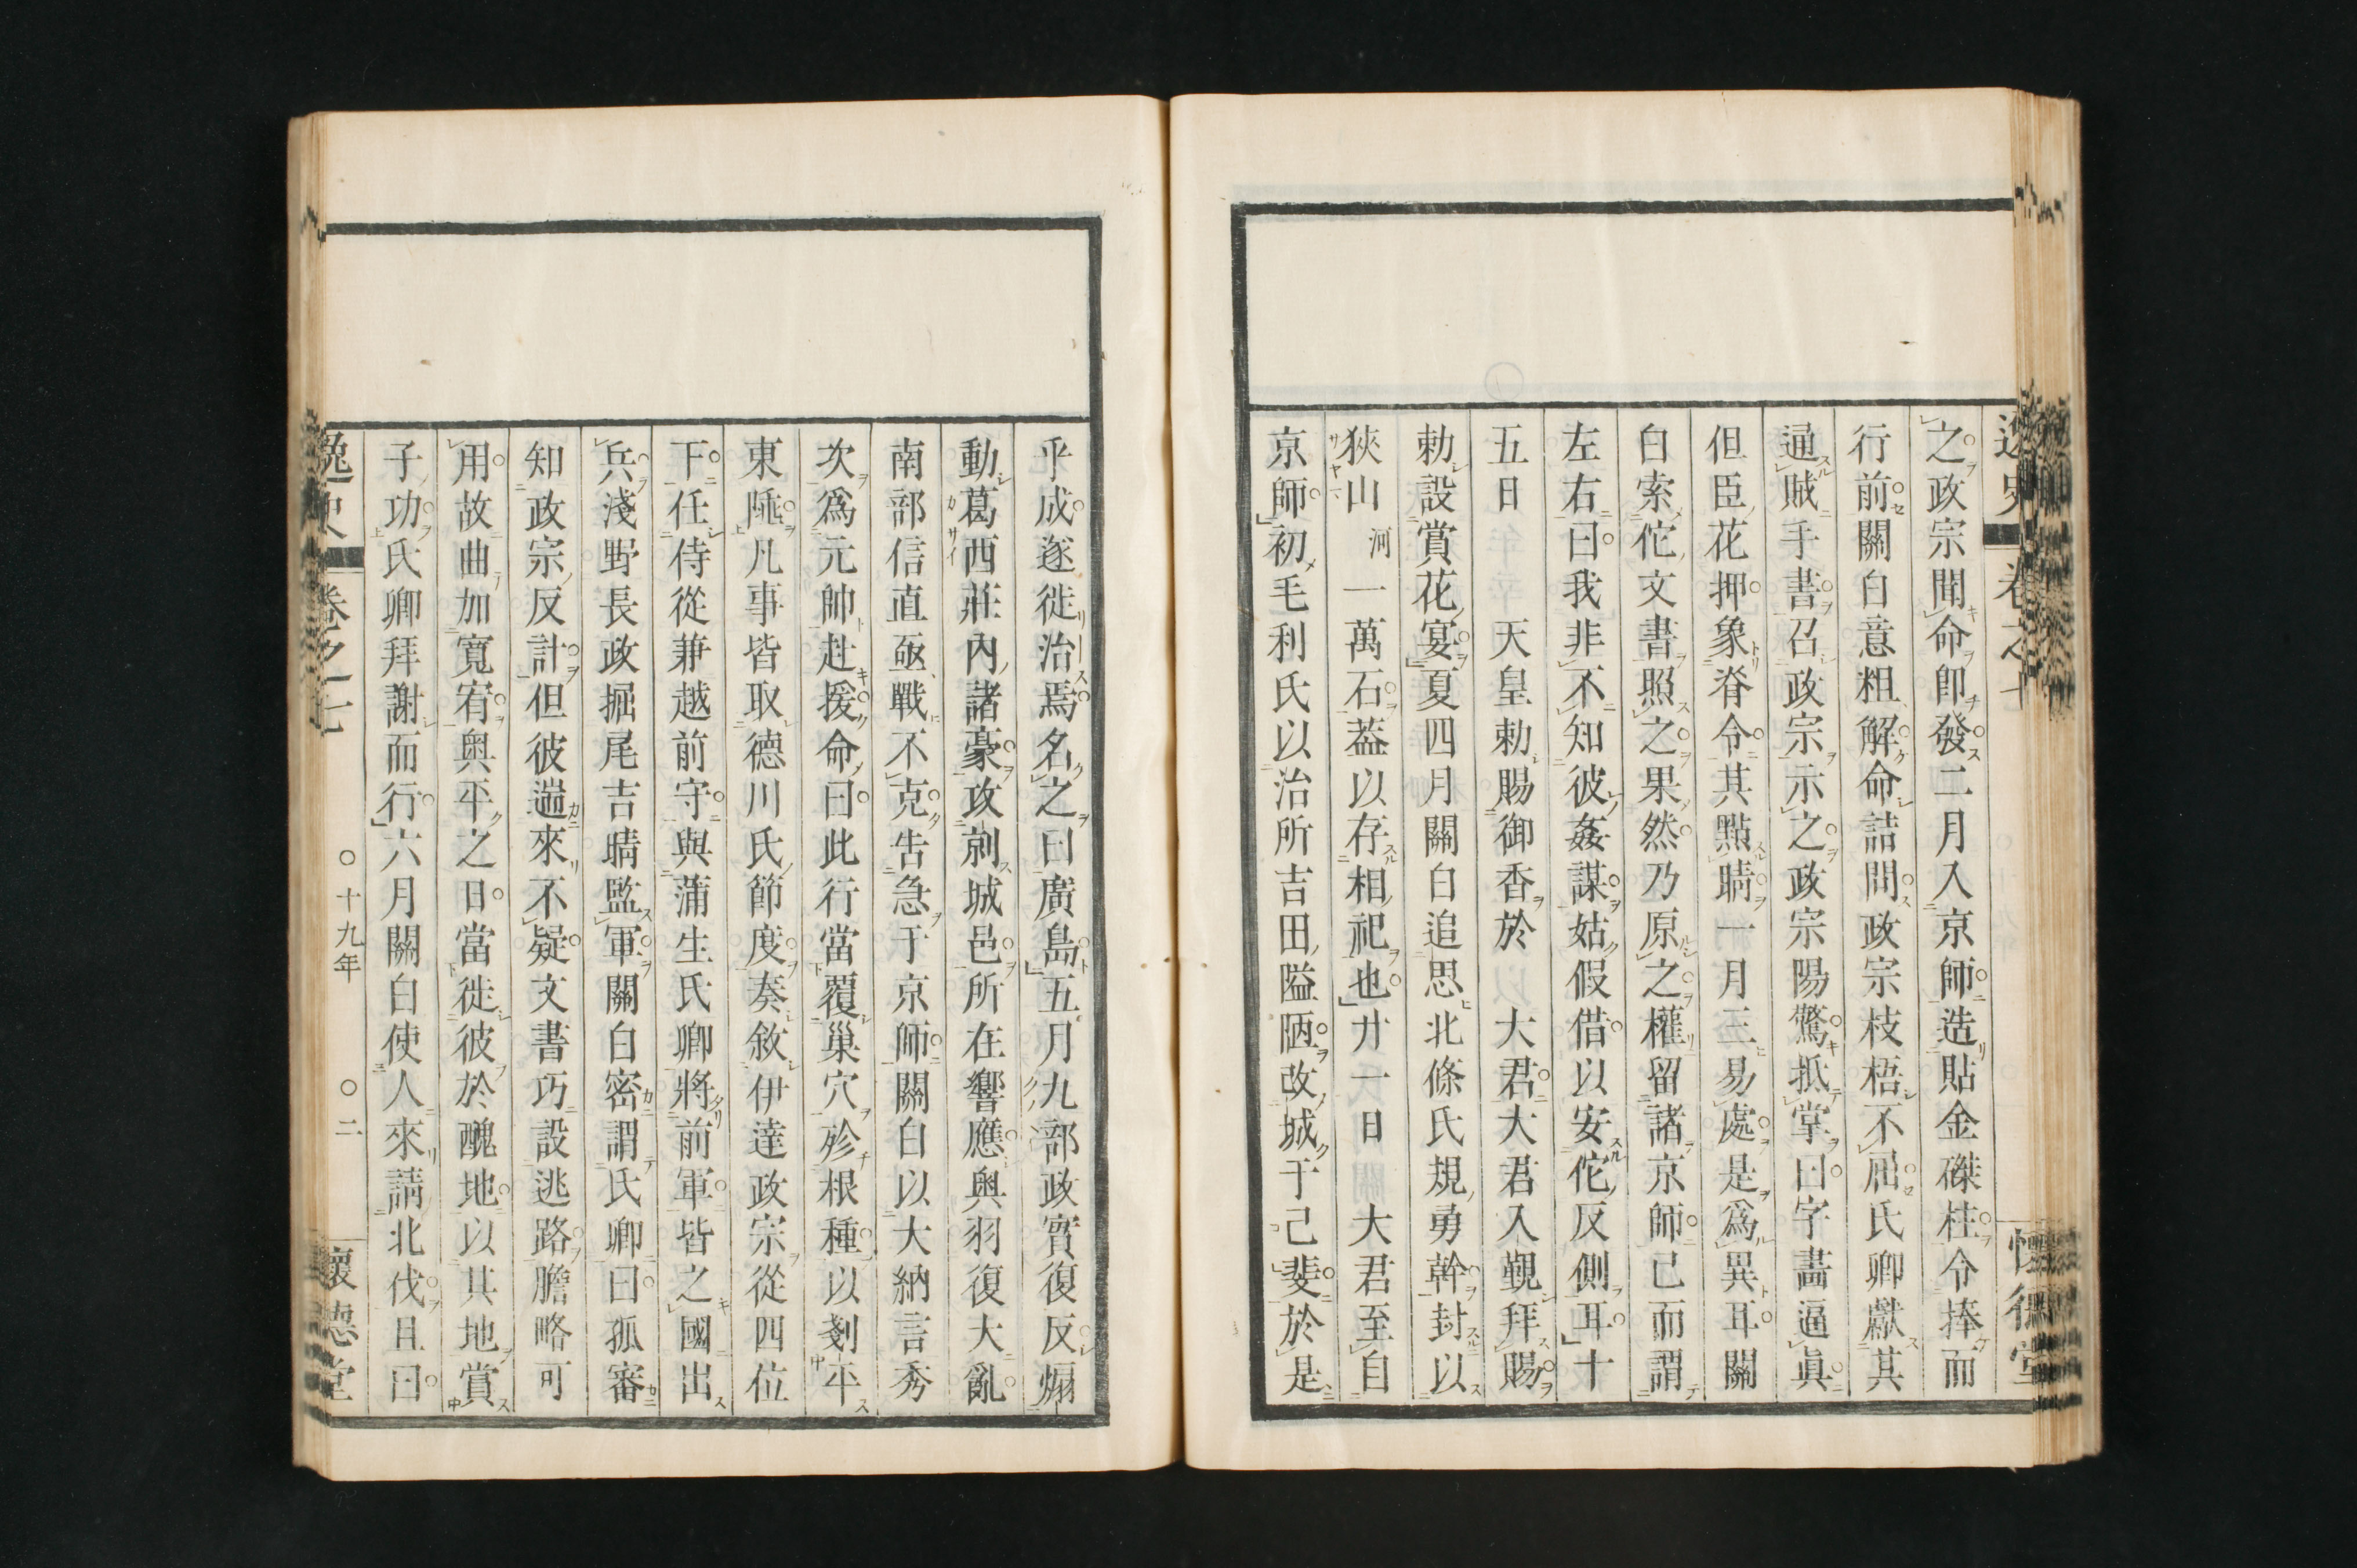 逸史 卷之七 懷德堂
之政宗聞命卽發二月入京師造貼金磔柱令捧而
行前關白意粗解命詰問政宗枝梧不屈氏卿獻其
通賊手書召政宗示之政宗陽驚抵掌曰字畵逼眞
但臣花押象脊令其點睛一月三易處是爲異耳關
白索佗文書照之果然乃原之權留諸京師已而謂
左右曰我非不知彼姦謀姑假借以安佗反側耳十
五日 天皇勅賜御香於 大君大君入覲拜賜
勅設賞花宴夏四月關白追思北條氏規勇幹封以
狹山河一萬石葢以存相祀也廿一日 大君至自
京師初毛利氏以治所吉田隘陋改城于己斐於是
乎成遂徙治焉名之曰廣島五月九部政實復反煽
動葛西莊內諸豪攻剥城邑所在響應奥羽復大亂
南部信直亟戰不克告急于京師關白以大納言秀
次爲元帥赴援命曰此行當覆巢穴殄根種以剗平
東陲凡事皆取德川氏節度奏敘伊達政宗從四位
下任侍從兼越前守與蒲生氏卿將前軍皆之國出
兵淺野長政堀尾吉晴監軍關白密謂氏卿曰孤審
知政宗反計但彼遄來不疑文書巧設逃路膽略可
用故曲加寬宥奥平之日當徙彼於醜地以其地賞
子功氏卿拜謝而行六月關白使人來請北伐且曰
逸史 卷之七 ○十九年 ○二 懷德堂